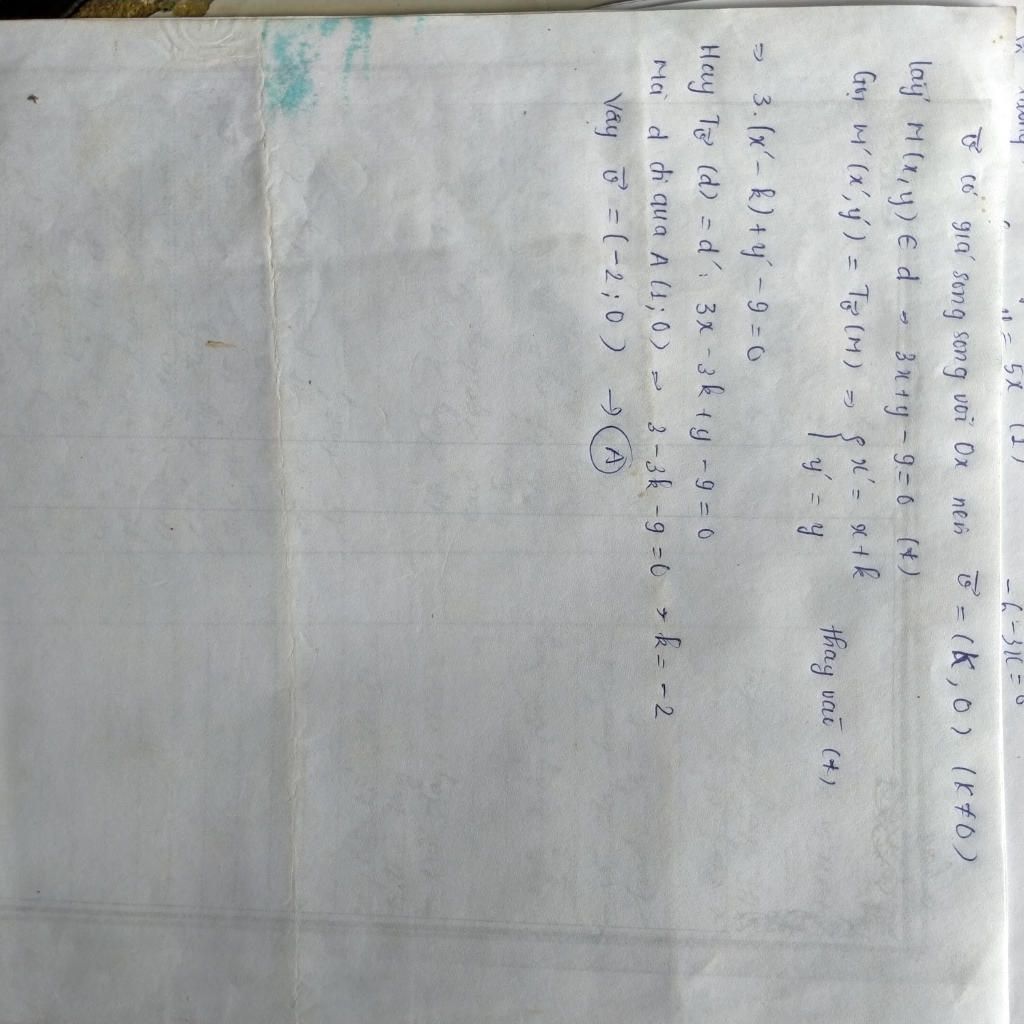 = 5x (1)
-6-3x=0
v⃗ có giá song song với Ox nên v⃗ = (K, 0) (K≠0)
lấy M(x, y) ∈ d ⇒ 3x+y-9=0 (*)
Gọi M'(x', y') = Tv⃗ (M) ⇒ { x' = x+k
y' = y thay vào (*)
⇒ 3.(x'-k)+y'-9=0
Hay Tv⃗ (d) = d': 3x-3k+y-9=0
Mà d đi qua A(1;0) ⇒ 3-3k-9=0 → k=-2
Vậy v⃗ = (-2;0) → A